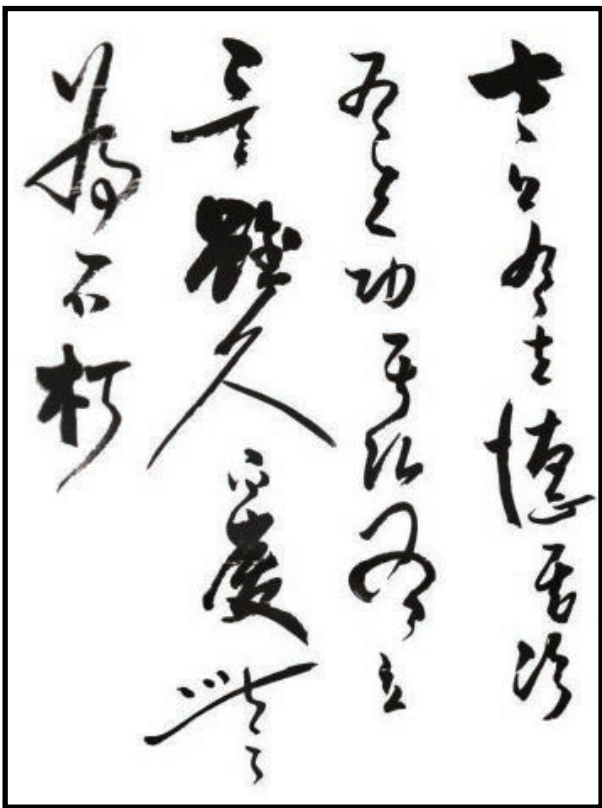 太上有立德其次
有立功其次有立
言雖久不廢此之
為不朽